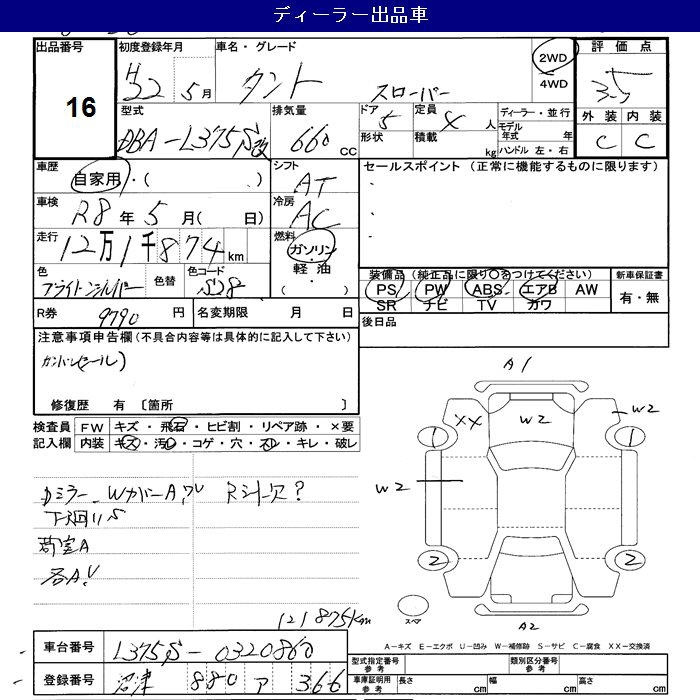 ディーラー出品車
出品番号 初度登録年月 車名・グレード 2WD 評価点
16 H22 5月 タント スローパー 4WD 3.5
型式 排気量 ドア 定員 ディーラー・並行 外装 内装
DBA-L375S改 660 cc 5 4人 モデル年式 年 C C
形状 積載 kg ハンドル 左・右
車歴 シフト セールスポイント (正常に機能するものに限ります)
自家用・( ) AT
車検 冷房
R8年5月( 日) AC
走行 燃料
12万1千874km ガソリン・
色 色替 色コード 軽油
ブライトンシルバー S28 (・)
装備品 (純正品に限り○をつけてください) 新車保証書
PS PW ABS エアB AW 有・無
SR ナビ TV カワ
R券 9790円 名変期限 月 日 後日品
注意事項申告欄 (不具合内容等は具体的に記入して下さい)
修復歴 有 〔箇所 〕
検査員 FW キズ・飛石・ヒビ割・リペア跡・×要
記入欄 内装 キズ・汚レ・コゲ・穴・スレ・キレ・破レ
A1
W2
XX W2
1 1
W2
2 2
スペア A2
Dミラー、WカバーA、 R 欠?
下廻りS
荷室A
各A、
121875km
車台番号 L375S-0320860
登録番号 沼津 880 ア 366
A-キズ E-エクボ U-凹み W-補修跡 S-サビ C-腐食 XX-交換済
型式指定番号 参考 類別区分番号 参考
車庫証明用 参考 長さ cm 幅 cm 高さ cm